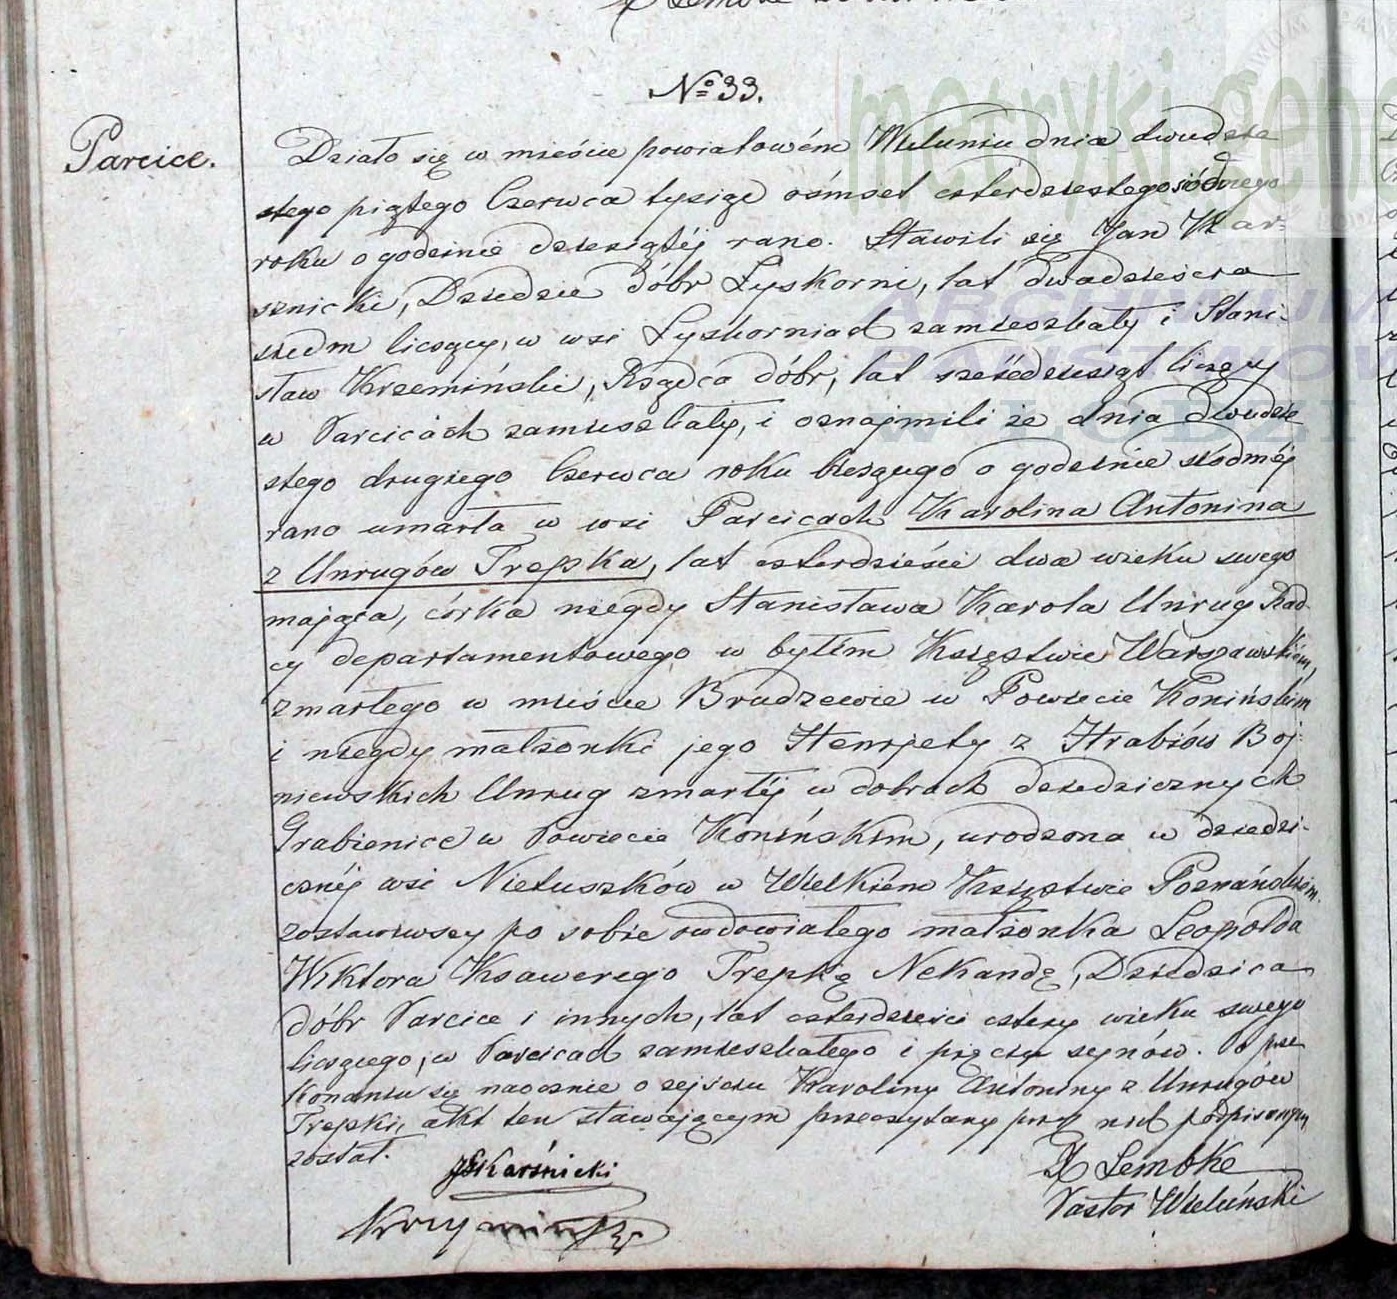 № 33.
Parcice.
Działo się w mieście powiatowém Wieluniu dnia dwudzie
stego piątego Czerwca tysiąc ośmset czterdziestego siódmego
roku o godzinie dziesiątéj rano. Stawili się Jan Kar=
sznicki, Dziedzic dóbr Łyskorni, lat dwadzieścia
siedm liczący, w wsi Łyskorniach zamieszkały i Stani-
sław Krzemiński, Rządca dóbr, lat sześćdziesiąt liczący
w Parcicach zamieszkały, i oznajmili że dnia dwudzie
stego drugiego Czerwca roku bieżącego o godzinie siódméj
rano umarła w wsi Parcicach Karolina Antonina
z Unrugów Trepka, lat czterdzieście dwa wieku swego
mająca, córka niegdy Stanisława Karola Unrug Rad-
cy departamentowego w byłém Księstwie Warszawskiém,
zmarłego w mieście Brudzewie w Powiecie Konińskim
i niegdy małżonki jego Henryety z Hrabiów Boj-
niewskich Unrug zmarłéj w dobrach dziedzicznych
Grabienice w Powiecie Konińskim, urodzona w dziedzi-
cznéj wsi Nietuszków w Wielkiém Księstwie Poznańskiém.
zostawiwszy po sobie owdowiałego małżonka Leopolda
Wiktora Ksawerego Trepkę Nekandę, Dziedzica
dóbr Parcice i innych, lat czterdzieści cztery wieku swego
liczącego, w Parcicach zamieszkałego i pięciu synów. Po prze
konaniu się naocznie o zejściu Karoliny Antoniny z Unrugów
Trepki, akt ten stawającym przeczytany przez nich podpisanym
został.
JKarśnicki
X Lembke
Krzyminski
Pastor Wieluński
metryki.gene
ARCHIWUM
PAŃSTWOW
W ŁODZI